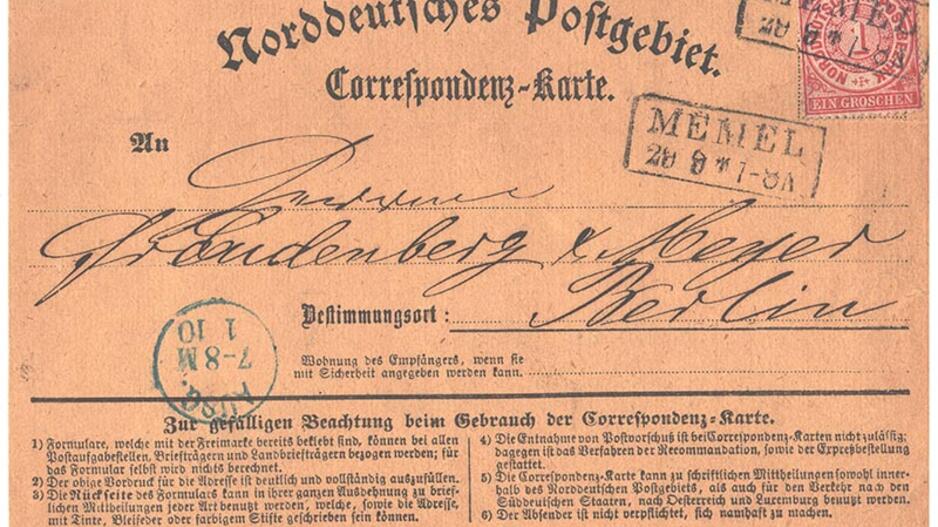 Norddeutsches Postgebiet.
Correspondenz-Karte.
MEMEL
NORDDEUTSCHER POSTBEZIRK
1
EIN GROSCHEN
An
MEMEL
Herren
& Meyer
Berlin
Bestimmungsort:
AUSG.
7-8 M
1 10
Wohnung des Empfängers, wenn sie
mit Sicherheit angegeben werden kann.
Zur gefälligen Beachtung beim Gebrauch der Correspondenz-Karte.
1) Formulare, welche mit der Freimarke bereits beklebt sind, können bei allen
Postaufgabestellen, Briefträgern und Landbriefträgern bezogen werden; für
das Formular selbst wird nichts berechnet.
2) Der obige Vordruck für die Adresse ist deutlich und vollständig auszufüllen.
3) Die Rückseite des Formulars kann in ihrer ganzen Ausdehnung zu brief-
lichen Mittheilungen jeder Art benutzt werden, welche, sowie die Adresse,
mit Tinte, Bleifeder oder farbigem Stifte geschrieben sein können.
4) Die Entnahme von Postvorschuß ist bei Correspondenz-Karten nicht zulässig;
dagegen ist das Verfahren der Recommandation, sowie der Expreßbestellung
gestattet.
5) Die Correspondenz-Karte kann zu schriftlichen Mittheilungen sowohl inner-
halb des Norddeutschen Postgebiets, als auch für den Verkehr nach den
Süddeutschen Staaten, nach Oesterreich und Luxemburg benutzt werden.
6) Der Absender ist nicht verpflichtet, sich namhaft zu machen.